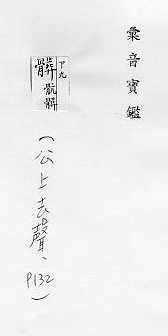 彙音寶鑑
下九
髒 骯髒
(公上去聲、P132)